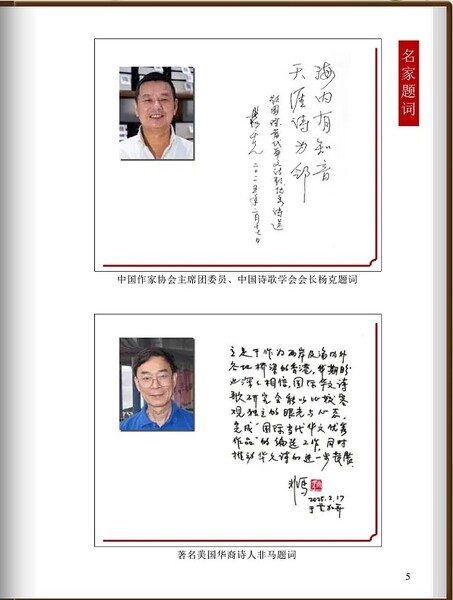 名家题词
海内有知音
天涯诗为邻
国际当代华文诗歌优秀诗选
杨克 二〇二五年二月十七日
中国作家协会主席团委员、中国诗歌学会会长杨克题词
立足于作为两岸及海内外
各地桥梁的香港,我期盼
也深深相信,国际华文诗
歌研究会能以比较客
观独立的眼光与心态,
完成“国际当代华文优秀
作品”的编选工作,同时
推动华文诗的进一步发展。
非馬
2025.2.17
于芝加哥
著名美国华裔诗人非马题词
5